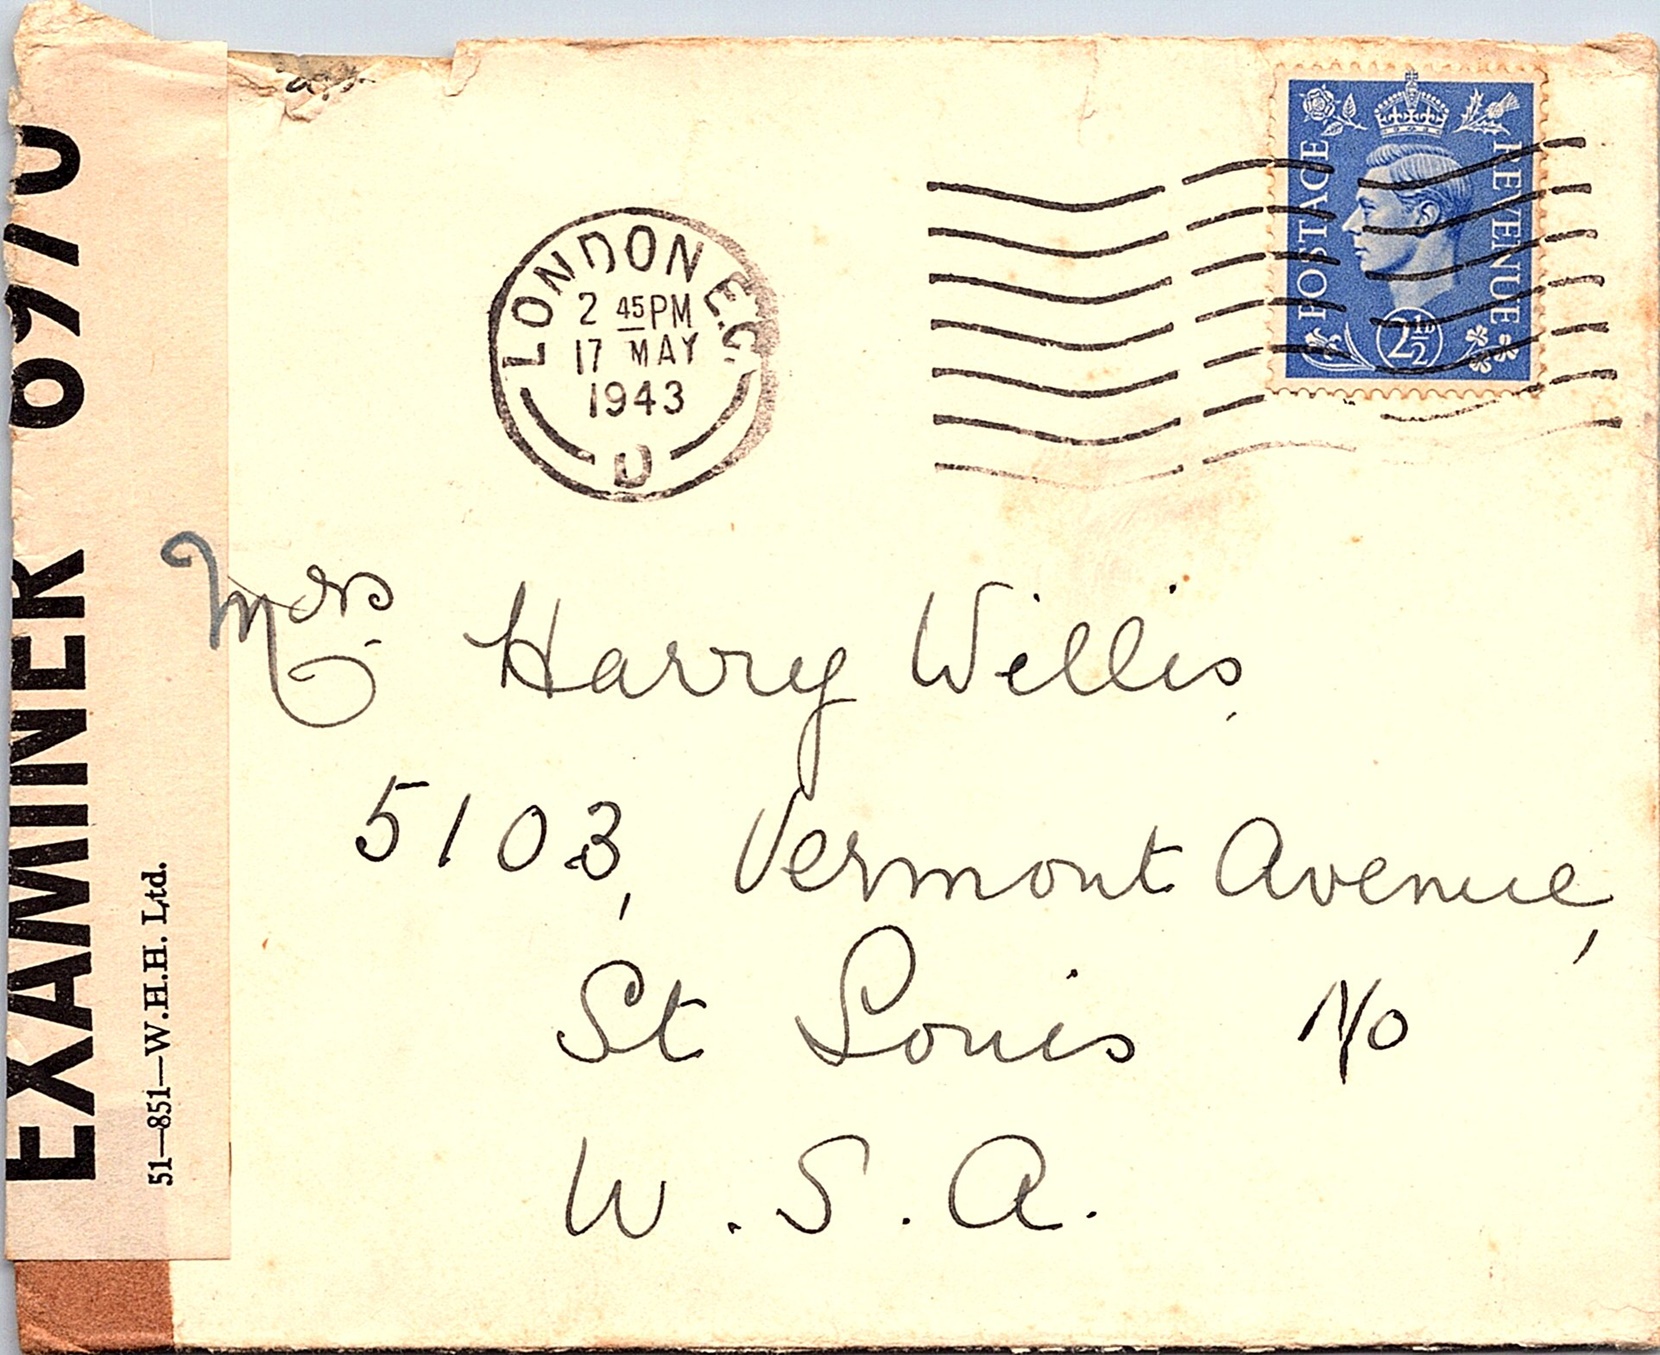 EXAMINER 6970
51—851—W.H.H. Ltd.
LONDON E.C.
2 45 PM
17 MAY
1943
D
POSTAGE
REVENUE
2½D
Mrs Harry Willis,
5103, Vermont Avenue,
St Louis Mo
U.S.A.